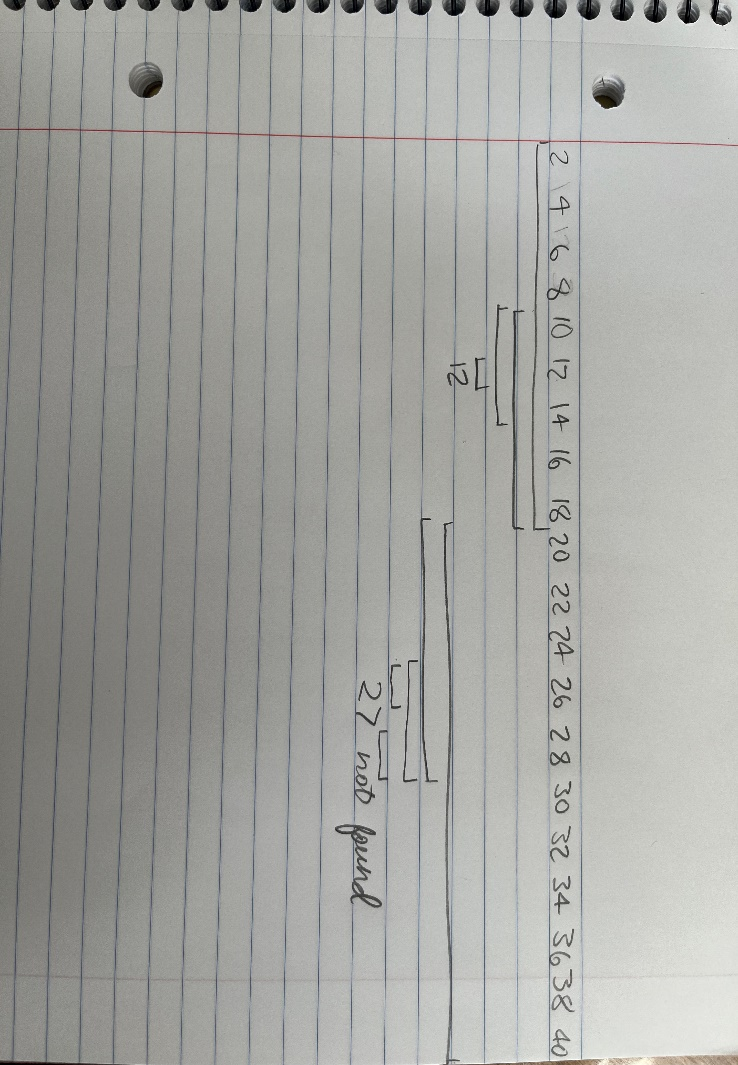 2 4 6 8 10 12 14 16 18 20 22 24 26 28 30 32 34 36 38 40
12
27 not found